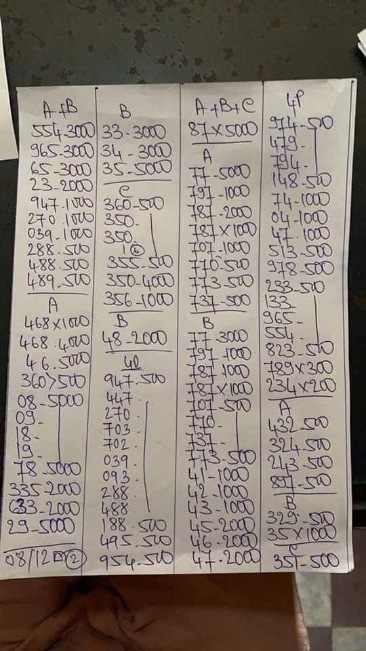 A+B
554-3000
965-3000
65-3000
23-2000
947-1000
270-1000
039-1000
288-500
488-500
489-500
A
468x1000
468-4000
46-5000
360>500
08-5000
09-
18-
19-
78-5000
335-2000
633-2000
29-5000
08/12 2
B
33-3000
34-3000
35-5000
C
360-500
350-
350
355-500
350-4000
356-1000
B
48-2000
947-500
447-
270-
703-
702-
039-
093-
288-
488-
188-500
495-500
954-500
A+B+C
87x5000
A
77-5000
797-1000
787-2000
787x1000
707-1000
770-500
773-500
737-500
B
77-3000
797-1000
787-1000
787x1000
707-500
770-
737-
773-500
41-1000
42-1000
43-1000
45-2000
46-2000
47-2000
4P
974-500
479-
794-
148-500
74-1000
04-1000
47-1000
513-500
978-500
233-500
133-
965-
554-
823-500
789x300
234x200
A
432-500
324-500
243-500
897-500
B
329-500
35x1000
C
351-500